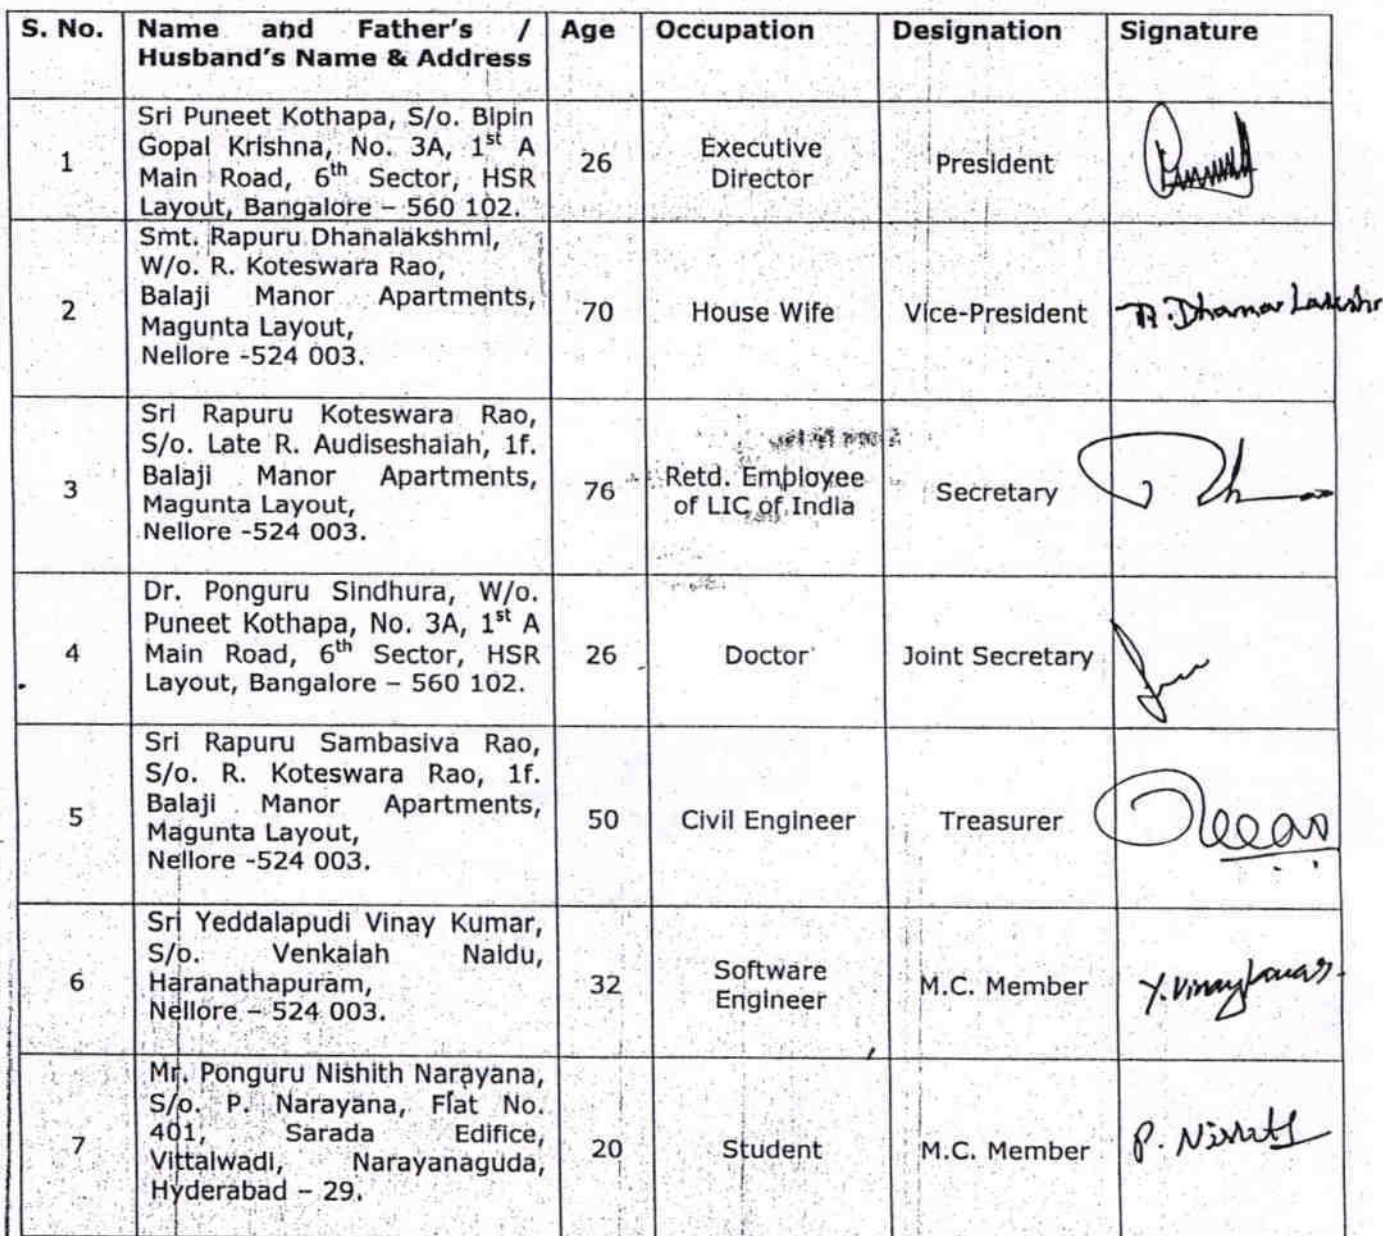 S. No. Name and Father's / Age Occupation Designation Signature
Husband's Name & Address
Sri Puneet Kothapa, S/o. Bipin
Gopal Krishna, No. 3A, 1st A
Main Road, 6th Sector, HSR
Layout, Bangalore – 560 102.
1 26 Executive Director President
Smt. Rapuru Dhanalakshmi,
W/o. R. Koteswara Rao,
Balaji Manor Apartments,
Magunta Layout,
Nellore -524 003.
2 70 House Wife Vice-President R. Dhana Lakshmi
Sri Rapuru Koteswara Rao,
S/o. Late R. Audiseshaiah, 1f.
Balaji Manor Apartments,
Magunta Layout,
Nellore -524 003.
3 76 Retd. Employee of LIC of India Secretary
Dr. Ponguru Sindhura, W/o.
Puneet Kothapa, No. 3A, 1st A
Main Road, 6th Sector, HSR
Layout, Bangalore – 560 102.
4 26 Doctor Joint Secretary
Sri Rapuru Sambasiva Rao,
S/o. R. Koteswara Rao, 1f.
Balaji Manor Apartments,
Magunta Layout,
Nellore -524 003.
5 50 Civil Engineer Treasurer
Sri Yeddalapudi Vinay Kumar,
S/o. Venkaiah Naidu,
Haranathapuram,
Nellore – 524 003.
6 32 Software Engineer M.C. Member Y. Vinay Kumar
Mr. Ponguru Nishith Narayana,
S/o. P. Narayana, Flat No.
401, Sarada Edifice,
Vittalwadi, Narayanaguda,
Hyderabad – 29.
7 20 Student M.C. Member P. Nishith